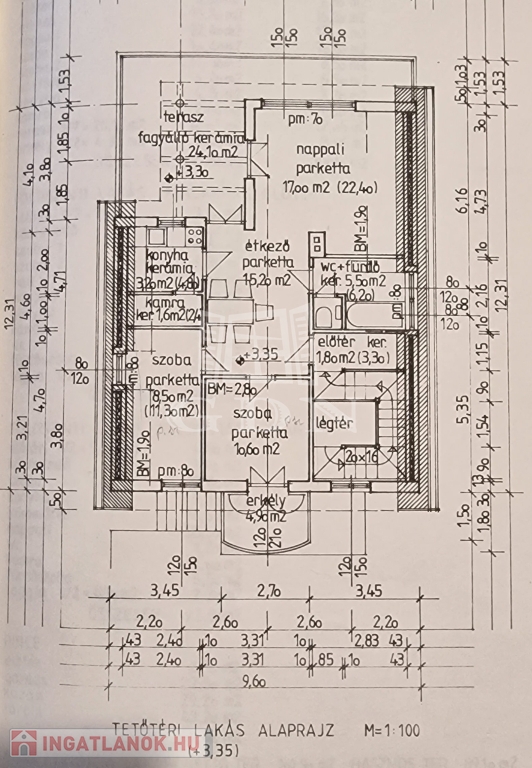 15o 15o
15o 15o
terasz
fagyálló kerámia
24,1o m2
+3,3o
pm:7o
nappali
parketta
17,oo m2 (22,4o)
BM=1,9o
konyha
kerámia
3,2o m2 (4,8o)
étkező
parketta
15,2o m2
wc+fürdő
ker. 5,5o m2
(6,2o)
pm:8o
kamra
ker 1,6 m2 (2,4
+3,35
előtér ker.
1,8o m2 (3,3o)
szoba
parketta
8,5o m2
(11,3o m2)
BM=1,9o
pm:8o
BM=2,8o
szoba
parketta
1o,6o m2
légtér
2o×16
erkély
4,9o m2
12o
15o
12o
21o
12o
15o
8o
12o
8o
12o
8o
12o
1,53
1o
1,85
1,85
4,1o
3,8o
3o
12,31
4,6o
2,oo
1,oo
4,71
4,7o
3,21
3,8o
3o
5o
5o 1,o3
1,53
1,53
3o
6,16
4,73
1o
2,16
12,31
1,15
9o
5,35
1,54
13 9o
1,5o
1,8o
3o
3,45 2,7o 3,45
2,2o 2,6o 2,6o 2,2o
43 2,4o 1o 3,31 1o 2,83 43
43 2,4o 1o 3,31 1o 85 1o 43
9,6o
TETŐTÉRI LAKÁS ALAPRAJZ M=1:100
(+3,35)
INGATLANOK.HU
GDN